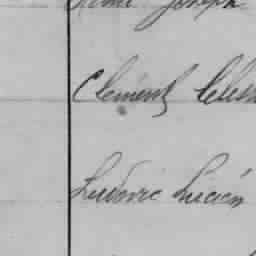 René Joseph
Clément Céles
Ludovic Lucien